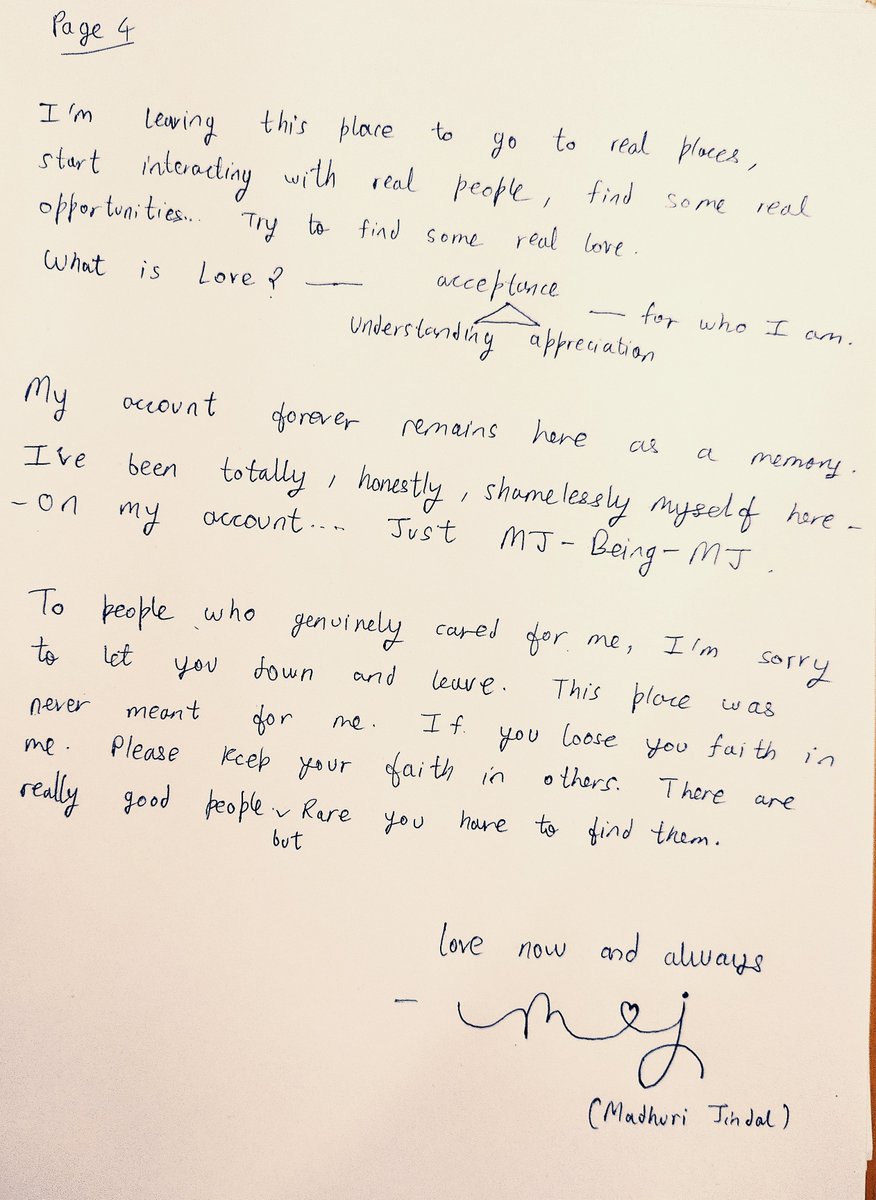 Page 4
I'm leaving this place to go to real places,
start interacting with real people, find some real
opportunities... Try to find some real love.
What is Love? — acceptance — for who I am.
Understanding appreciation
My account forever remains here as a memory.
I've been totally, honestly, shamelessly myself here -
- On my account.... Just MJ - Being - MJ.
To people who genuinely cared for me, I'm sorry
to let you down and leave. This place was
never meant for me. If you loose you faith in
me. Please keep your faith in others. There are
really good people. Rare you have to find them.
but
love now and always
- mj
(Madhuri Jindal)